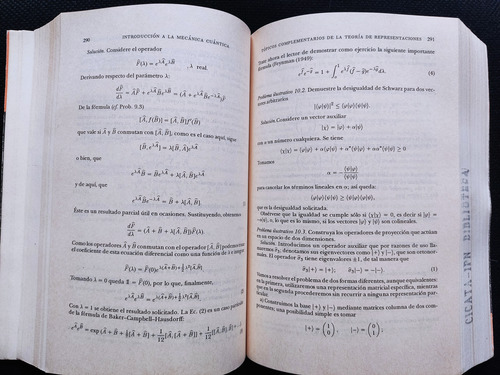 290 INTRODUCCIÓN A LA MECÁNICA CUÁNTICA
Solución. Considere el operador
F̂(λ) = e^{λÂ}e^{λB̂}, λ real.
Derivando respecto del parámetro λ:
dF̂/dλ = ÂF̂ + e^{λÂ}B̂e^{λB̂} = (Â + e^{λÂ}B̂e^{−λÂ})F̂
De la fórmula (cf. Prob. 9.3)
[Â, f(B̂)] = [Â, B̂]f′(B̂)
que vale si Â y B̂ conmutan con [Â, B̂], como es el caso aquí, sigue
[B̂, e^{λÂ}] = λ[B̂, Â]e^{λÂ}
o bien, que
e^{λÂ}B̂ = B̂e^{λÂ} + λ[Â, B̂]e^{λÂ}
y de aquí, que
e^{λÂ}B̂e^{−λÂ} = B̂ + λ[Â, B̂]
Éste es un resultado parcial útil en ocasiones. Sustituyendo, obtenemos
dF̂/dλ = (Â + B̂ + λ[Â, B̂])F̂(λ).
Como los operadores Â y B̂ conmutan con el operador [Â, B̂] podemos tomar
el coeficiente de esta ecuación diferencial como una función de λ e integrar:
F̂(λ) = F̂(0)e^{λ(Â+B̂)+½λ²[Â,B̂]}
Tomando λ = 0 queda 1 = F̂(0), por lo que, finalmente,
e^{λÂ}e^{λB̂} = e^{λ(Â+B̂)+½λ²[Â,B̂]}
Con λ = 1 se obtiene el resultado solicitado. La Ec. (2) es un caso particular
de la fórmula de Baker-Campbell-Hausdorff:
e^{Â}e^{B̂} = exp (Â + B̂ + ½[Â, B̂] + 1/12[Â, [Â, B̂]] +
TÓPICOS COMPLEMENTARIOS DE LA TEORÍA DE REPRESENTACIONES 291
ahora el lector de demostrar como ejercicio la siguiente importante
fórmula (Feynman (1949):
(6)
Problema ilustrativo 10.2. Demuestre la desigualdad de Schwarz para dos vec-
tores arbitrarios
|⟨φ|ψ⟩|² ≤ ⟨φ|φ⟩⟨ψ|ψ⟩
Solución. Considere un vector auxiliar
|χ⟩ = |φ⟩ + α|ψ⟩
con α un número cualquiera. Se tiene
⟨χ|χ⟩ = ⟨φ|φ⟩ + α⟨φ|ψ⟩ + α*⟨ψ|φ⟩ + αα*⟨ψ|ψ⟩ ≥ 0
Tomamos
α = −⟨ψ|φ⟩/⟨ψ|ψ⟩
para cancelar los términos lineales en α; así queda:
⟨φ|φ⟩⟨ψ|ψ⟩ ≥ ⟨φ|ψ⟩⟨ψ|φ⟩,
que es la desigualdad solicitada.
Obsérvese que la igualdad se cumple sólo si ⟨χ|χ⟩ = 0, es decir si |φ⟩ =
−α|ψ⟩, o, lo que es lo mismo, si los vectores |φ⟩ y |ψ⟩ son colineales.
Problema ilustrativo 10.3. Construya los operadores de proyección que actúan
en un espacio de dos dimensiones.
Solución. Introducimos un operador auxiliar que por razones de uso lla-
maremos σ̂₃; denotamos sus eigenvectores como |+⟩ y |−⟩, que son ortonor-
males. El operador σ̂₃ tiene eigenvalores ±1, de tal manera que
σ̂₃|+⟩ = |+⟩; σ̂₃|−⟩ = −|−⟩ (1)
Vamos a resolver el problema de dos formas diferentes, aunque equivalentes:
en la primera, utilizaremos una representación matricial específica, mientras
que en la segunda procederemos sin recurrir a ninguna representación par-
ticular.
a) Construimos la base |+⟩ y |−⟩ mediante matrices columna de dos com-
ponentes; una posibilidad simple es tomar
|+⟩ = (1 0), |−⟩ = (0 1);
CICATA-IPN BIBLIOTECA